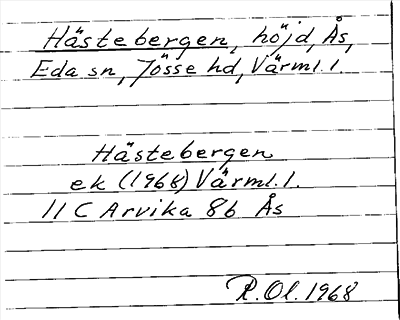 Hästebergen, höjd, Ås,
Eda sn, Jösse hd, Värml. l.
Hästebergen
ek (1968) Värml. l.
11 C Arvika 8b Ås
R. Ol. 1968